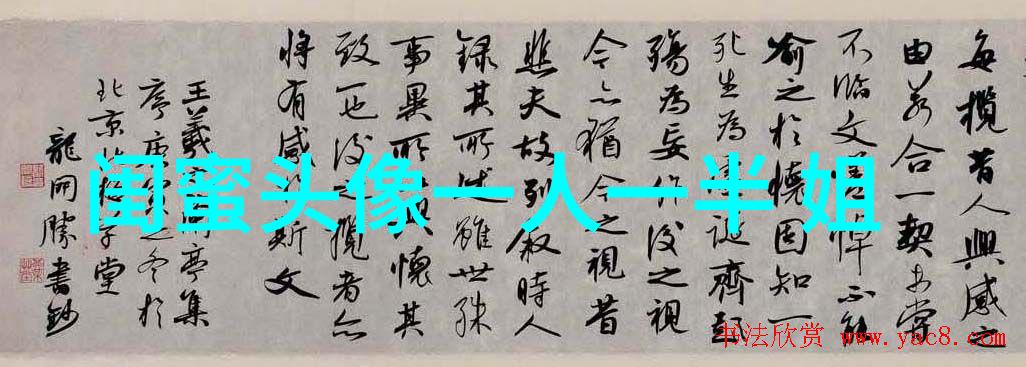 每攬昔人興感之
由若合一契未嘗
不臨文嗟悼不能
喻之於懷固知一
死生為虛誕齊彭
殤為妄作後之視
今亦猶今之視昔
悲夫故列敘時人
錄其所述雖世殊
事異所以興懷其
致一也後之攬者亦
將有感於斯文
王羲之蘭亭集
序庚寅之冬於
北京 子堂
龍開勝書鈔
闺蜜头像一人一半姐
书法欣赏 www.yac8.com